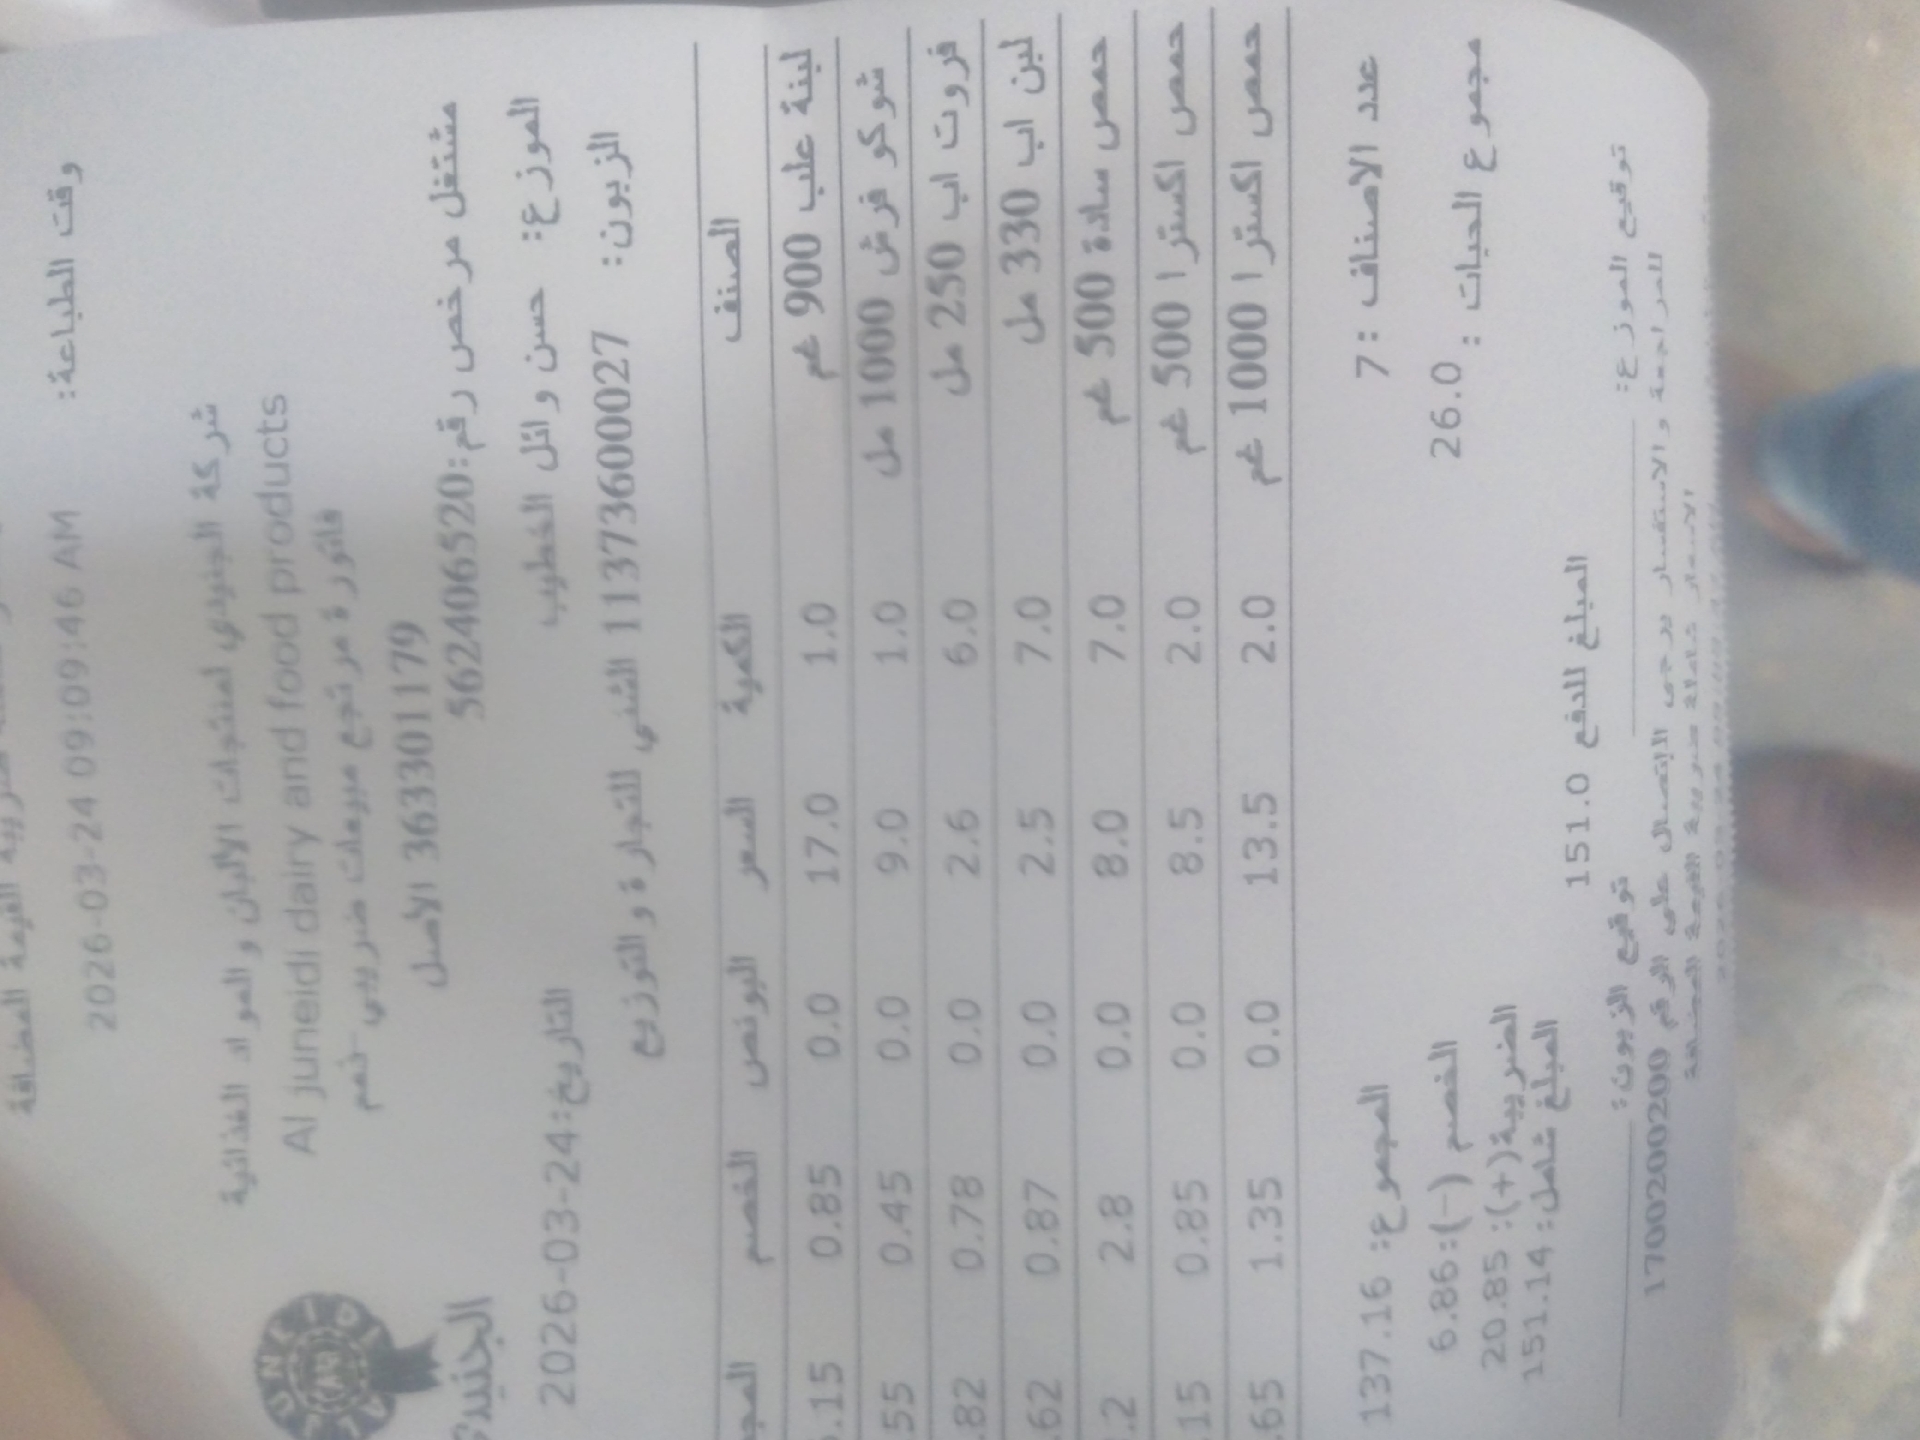 ضريبة القيمة المضافة
وقت الطباعة: 2026-03-24 09:09:46 AM
شركة الجنيدي لمنتوجات الالبان والمواد الغذائية
Al juneidi dairy and food products
فاتورة مرتجع مبيعات ضريبي-ذمم
3633301179 الأصل
مشتغل مرخص رقم:562406520
JUNEIDI
الجنيدي
الموزع: حسن وائل الخطيب
التاريخ:2026-03-24
الزبون: 1137360027 الثني للتجارة والتوزيع
الصنف الكمية السعر البونص الخصم المج
لبنة علب 900 غم 1.0 17.0 0.0 0.85 .15
شوكو فرش 1000 مل 1.0 9.0 0.0 0.45 .55
فروت اب 250 مل 6.0 2.6 0.0 0.78 .82
لبن اب 330 مل 7.0 2.5 0.0 0.87 .62
حمص سادة 500 غم 7.0 8.0 0.0 2.8 .2
حمص اكسترا 500 غم 2.0 8.5 0.0 0.85 .15
حمص اكسترا 1000 غم 2.0 13.5 0.0 1.35 .65
عدد الاصناف : 7 المجموع: 137.16
مجموع الحبات : 26.0 الخصم (-):6.86
الضريبة(+): 20.85
المبلغ شامل: 151.14
المبلغ للدفع 151.0
توقيع الموزع: توقيع الزبون:
للمراجعة والاستفسار يرجى الإتصال على الرقم 1700200200
الاسعار شاملة ضريبة القيمة المضافة